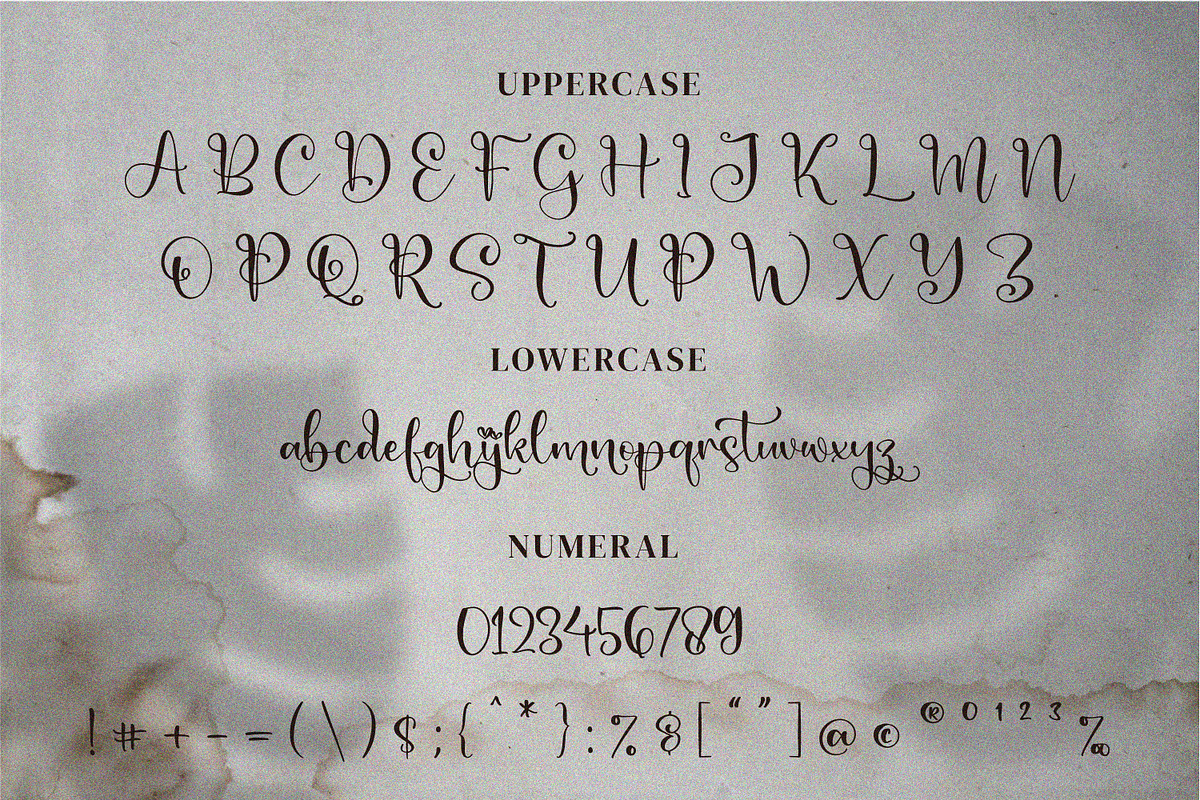 UPPERCASE
A B C D E F G H I J K L M N
O P Q R S T U P W X Y Z
LOWERCASE
abcdefghijklmnopqrstuvwxyz
NUMERAL
0123456789
! # + - = ( \ ) $ ; { ^ * } : % & [ “ ” ] @ © ® 0 1 2 3 ‰